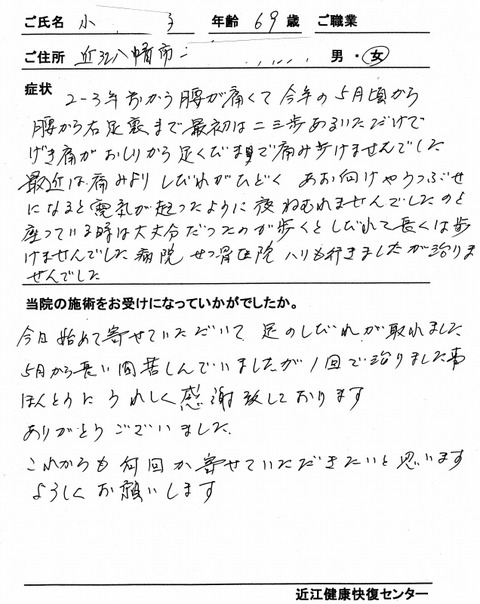 ご氏名 小 子 年齢 69 歳 ご職業
ご住所 近江八幡市 男・女
症状 2-3年前から腰が痛くて今年の5月頃から
腰から右足裏まで最初は二三歩あるいただけで
げき痛がおしりから足くびまで痛み歩けませんでした
最近は痛みよりしびれがひどく あお向けやうつぶせ
になると電気が走ったように夜ねむれませんでしたのと
座っている時は大丈夫だったのが歩くとしびれて長くは歩
けませんでした 病院 せっ骨住院 ハリも行きましたが治りま
せんでした
当院の施術をお受けになっていかがでしたか。
今日始めて寄せていただいて 足のしびれが取れました
5月から長い間苦しんでいましたが1回で治りました事
ほんとうにうれしく感謝致しております
ありがとうございました.
これからも何回か寄せていただきたいと思います
よろしくお願いします
近江健康快復センター